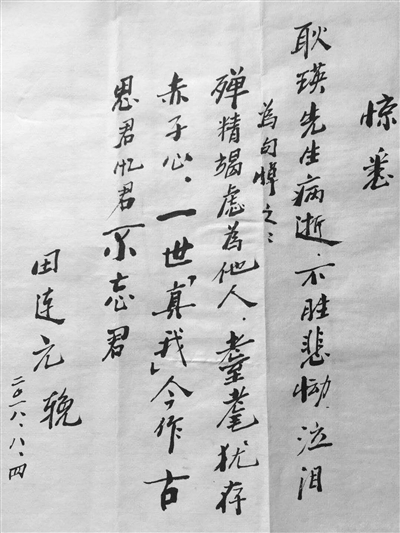 惊悉
耿瑛先生病逝.不胜悲恸.泣泪
為句悼之:
殚精竭虑為他人.老至耄耄犹存
赤子心.一世「真我」今作古
思君忆君不忘君
田连元 輓
二〇一八.八.四